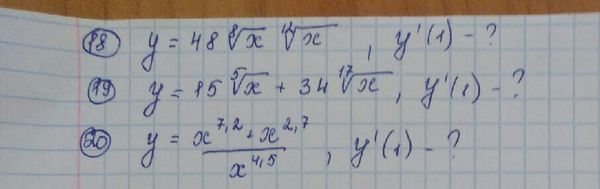 (18) y = 48 ⁸√x ¹⁴√x , y'(1) - ?
(19) y = 15 ⁵√x + 34 ¹⁷√x , y'(1) - ?
(20) y = (x^7,2 + x^2,7) / x^4,5 , y'(1) - ?